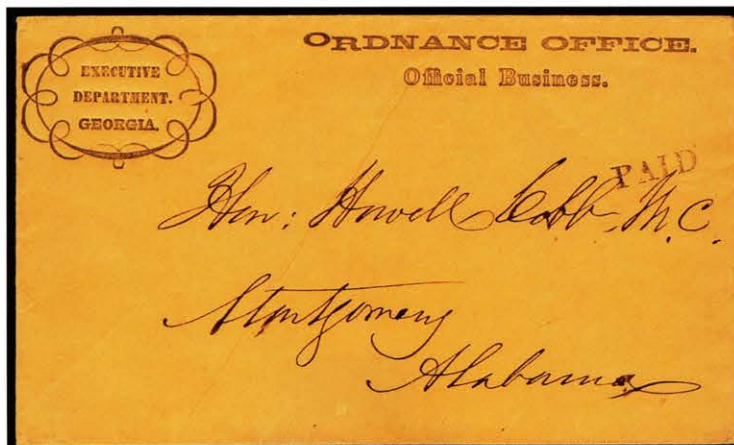 EXECUTIVE
DEPARTMENT.
GEORGIA.
ORDNANCE OFFICE.
Official Business.
PAID
Hon: Howell Cobb, M.C.
Montgomery
Alabama